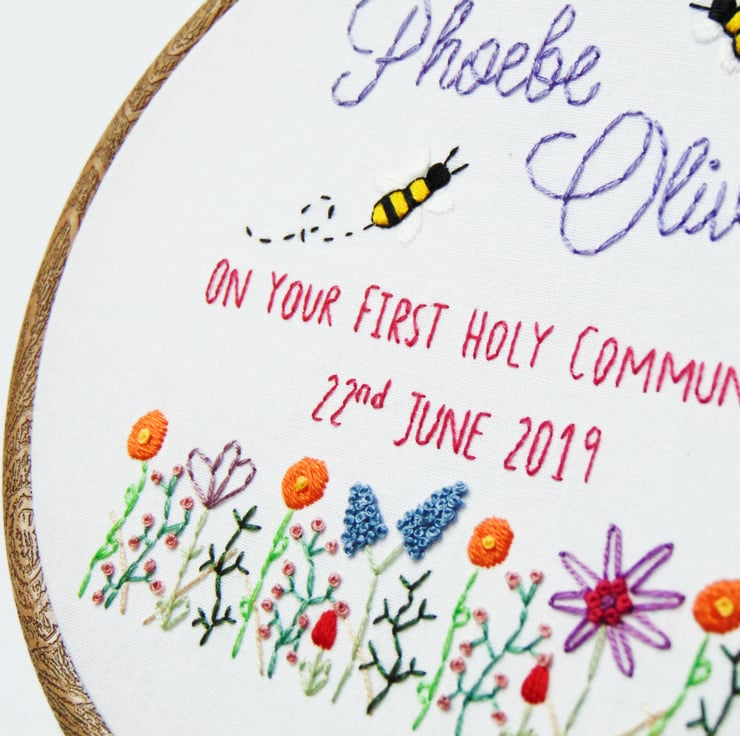 Phoebe
Oliv
ON YOUR FIRST HOLY COMMUN
22nd JUNE 2019